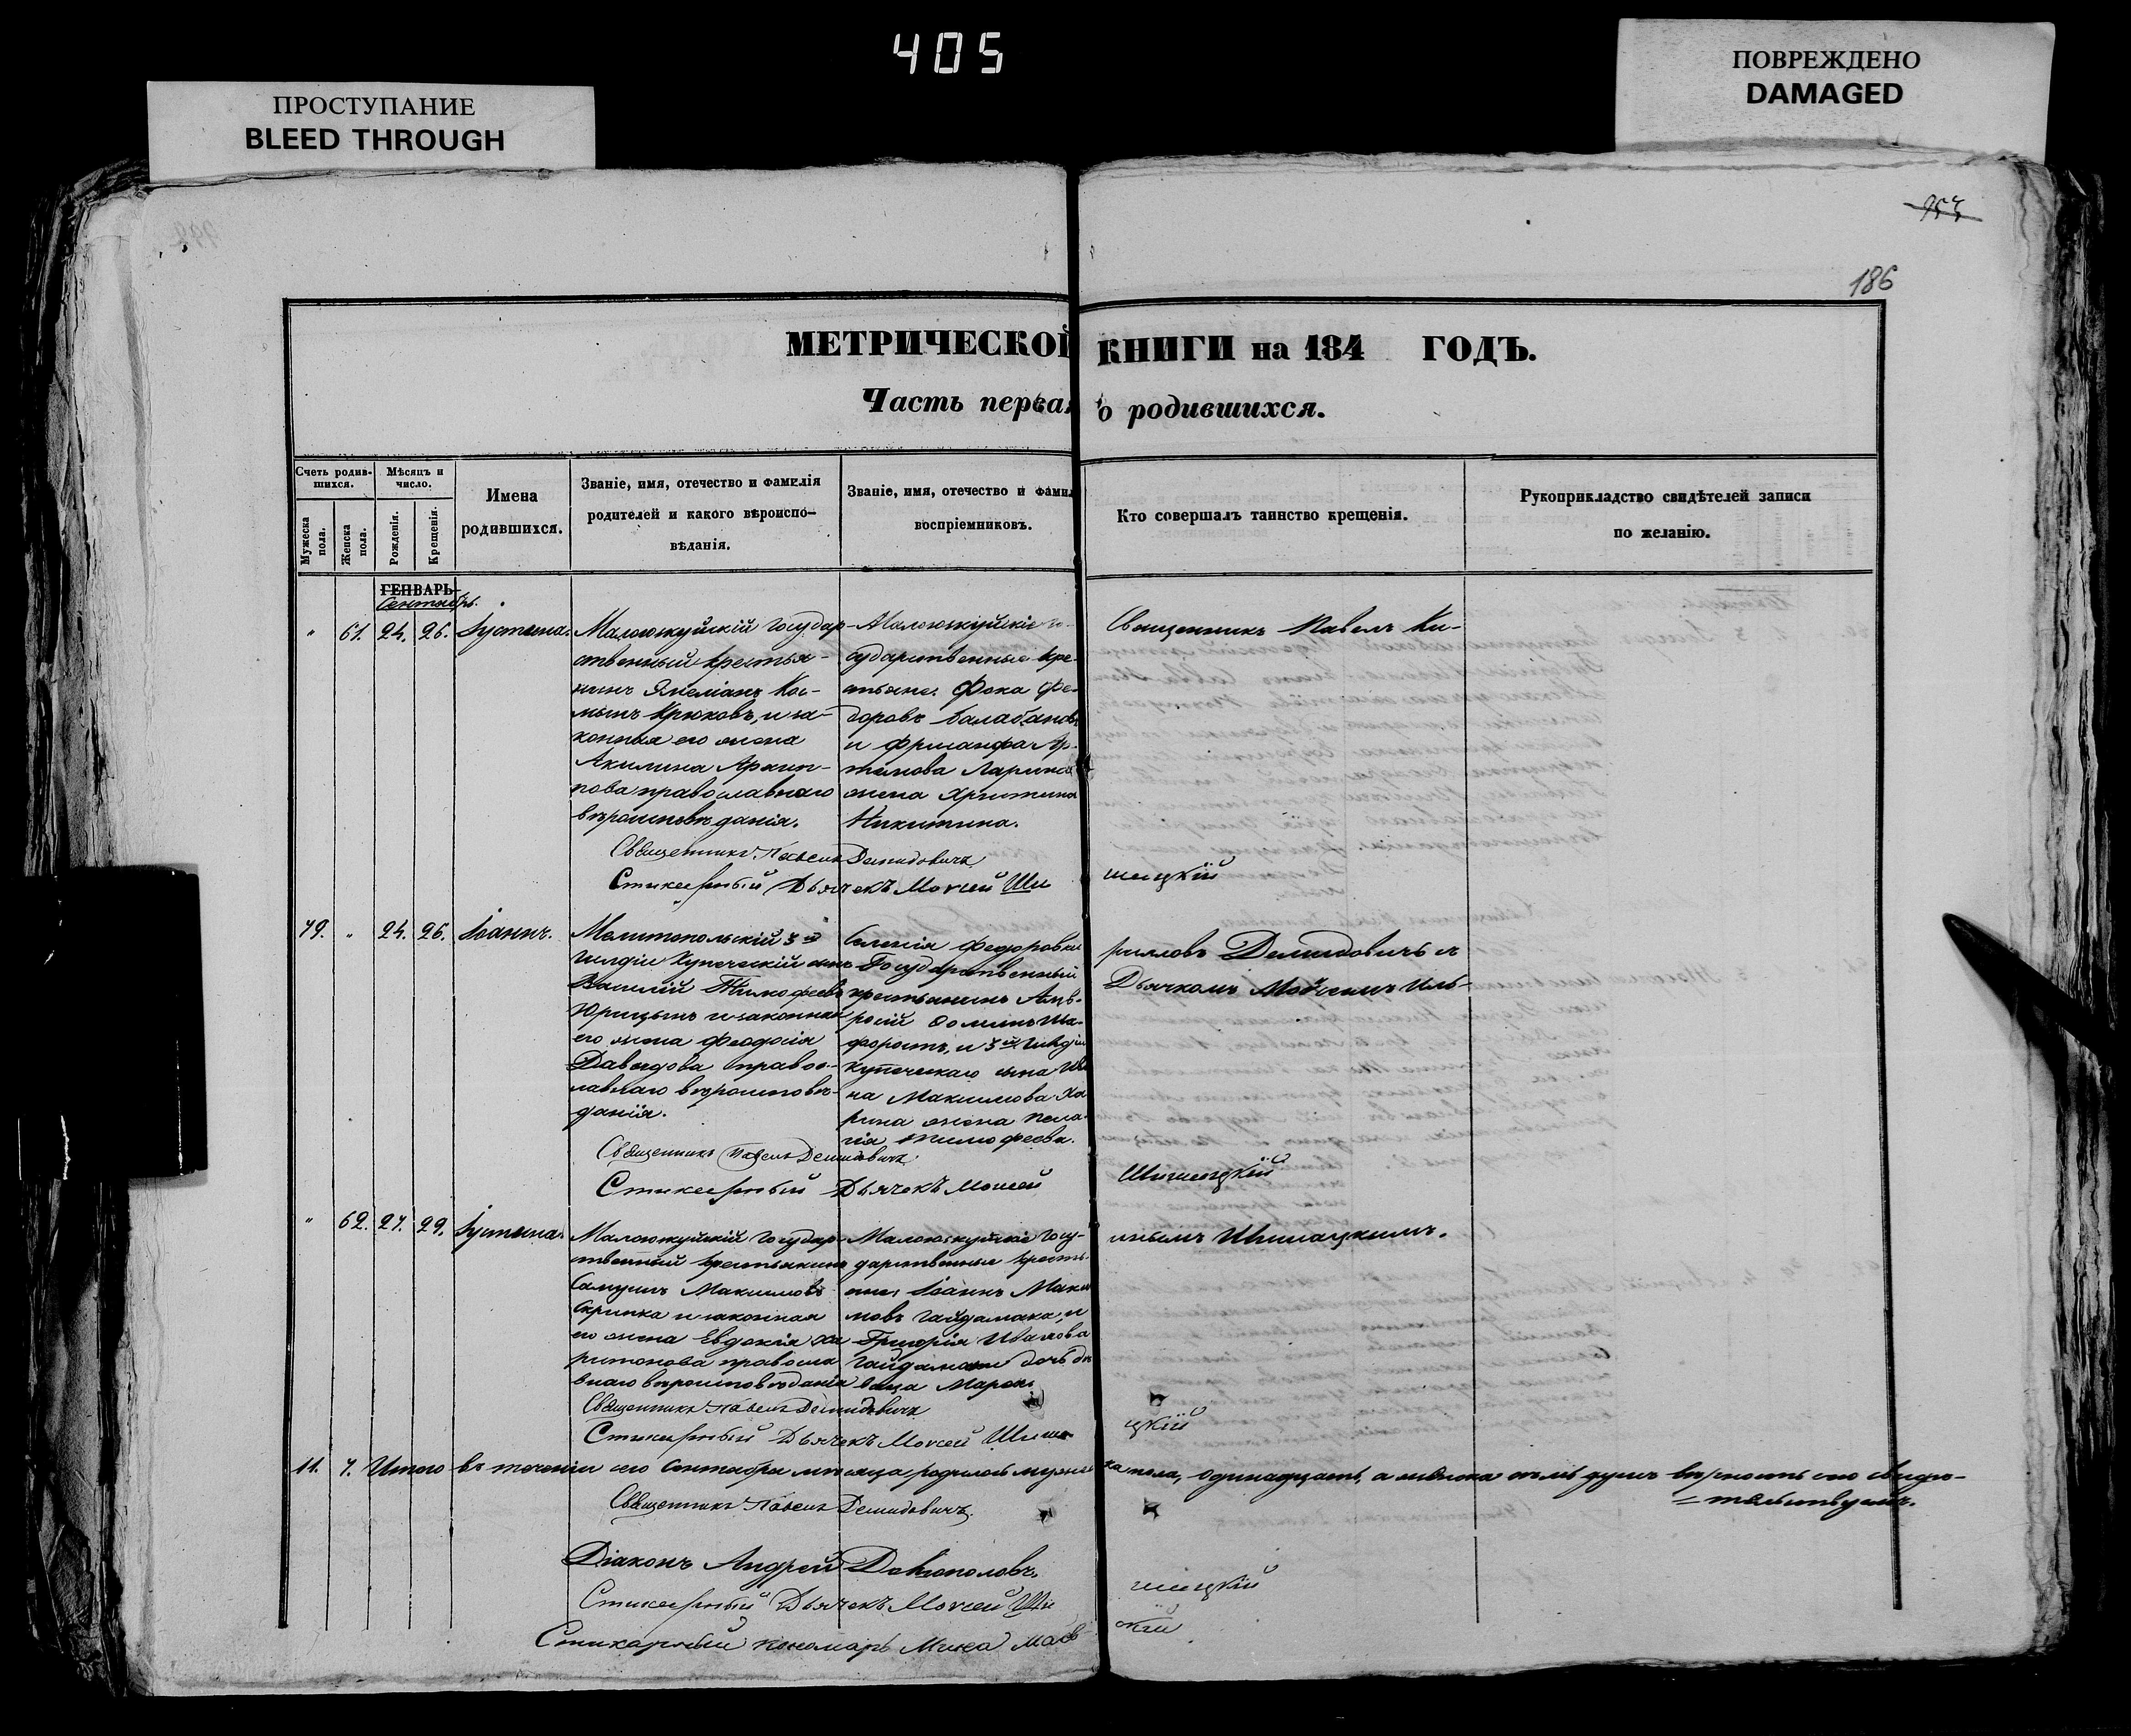 405
ПРОСТУПАНИЕ
BLEED THROUGH
ПОВРЕЖДЕНО
DAMAGED
186
МЕТРИЧЕСКОЙ КНИГИ на 184 ГОДЪ.
Часть первая о родившихся.
Счетъ родив-
шихся.
Мужеска пола.
Женска пола.
Мѣсяцъ и
число.
Рожденія.
Крещенія.
Имена
родившихся.
Званіе, имя, отечество и фамилія
родителей и какого вѣроиспо-
вѣданія.
Званіе, имя, отечество и фамил
воспріемниковъ.
Кто совершалъ таинство крещенія.
Рукоприкладство свидѣтелей записи
по желанію.
ГЕНВАРЬ
Сентябрь.
" 61. 24. 26. Іустина.
Малоюкуйскій государ-
ственный крестья-
нинъ Емеліанъ Кос-
мынъ Крюковъ, и за-
конная его жена
Акилина Архип-
пова православнаго
вѣроисповѣданія.
Малоюкуйскіе го-
сударственные кре-
стьяне: Фока Фе-
доровъ Балабановъ
и
жена Христина
Никитина.
Священникъ Павелъ Ки-
Священникъ Павелъ Демидовичъ
Стихарный Дьячекъ Моисей Ши шацкій
79. " 24. 26. Іоаннъ.
Мелитопольскій 3й
гильдіи купеческій сынъ
Василій Тимофеевъ
Юрицынъ и законная
его жена Феодосія
Давыдова правос-
лавнаго вѣроисповѣ-
данія.
Федоровки
Государственный
крестьянинъ Амв-
росій Фоминъ Ша-
форостъ, и 3й гильдіи
купеческаго сына Ива
на Максимова Ха
рина жена Пела-
гія Тимофеева.
рилловъ Демидовичъ съ
Дьячкомъ Моисеемъ Иль-
Священникъ Павелъ Демидовичъ
Стихарный Дьячекъ Моисей Шишацкій
" 62. 27. 29. Іустина
Малоюкуйскій государ-
ственный крестьянинъ
Самуилъ Максимовъ
Скрипка и законная
его жена Евдокія Ха
ритонова правосла
внаго вѣроисповѣданія
Малоюкуйскіе госу-
дарственные кресть-
яне: Іоаннъ Макси
мовъ Гайдамака; и
Григорія Иванова
Гайдамаки дочь дѣ
вица Марѳа.
инымъ Шишацкимъ.
Священникъ Павелъ Демидовичъ
Стихарный Дьячекъ Моисей Шиша цкій
11. 7. Итого въ теченіи сего Сентября мѣсяца родилось мужес ка пола, одинадцать, а женска семь душъ вѣрность сего свидѣ-
=тельствуемъ.
Священникъ Павелъ Демидовичъ
Діаконъ Андрей
Стихарный Дьячекъ Моисей Ши шацкій
Стихарный пономарь Миха